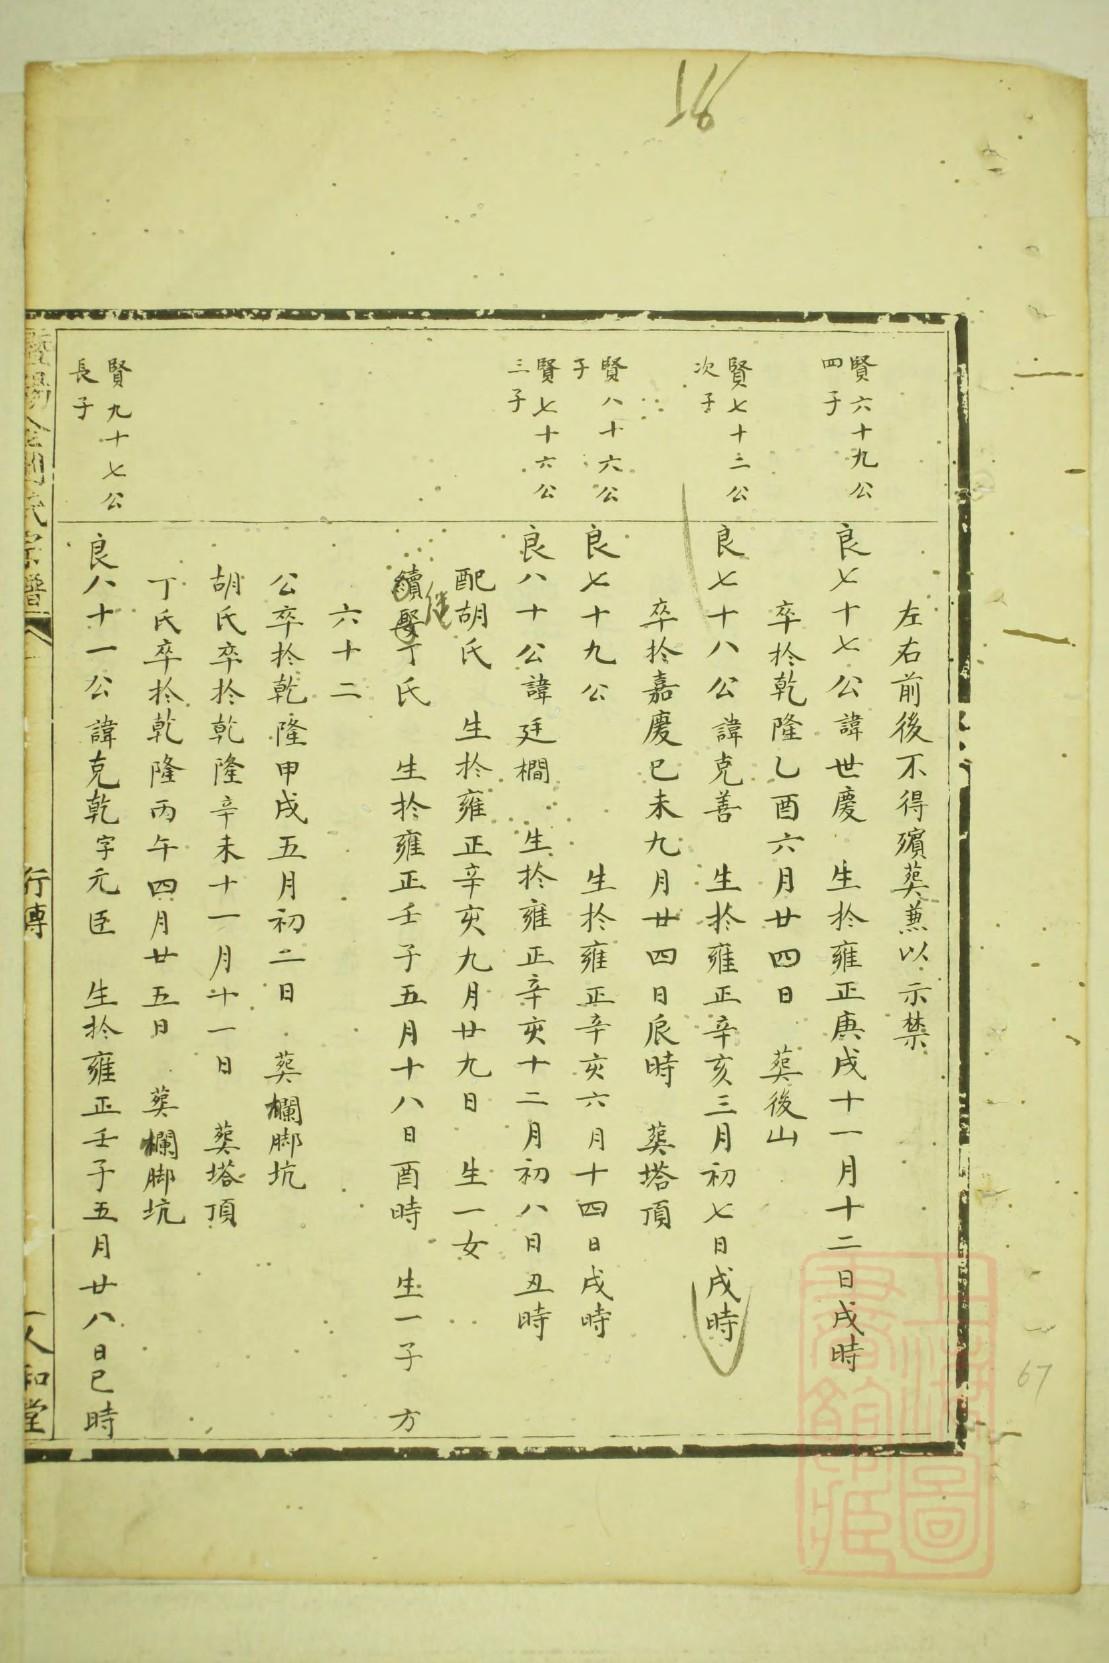 16
左右前後不得殯葬兼以示禁
賢六十九公
四子
良七十七公諱世慶 生於雍正庚戌十一月十二日戌時
卒於乾隆乙酉六月廿四日 葬後山
賢七十二公
次子
良七十八公諱克善 生於雍正辛亥三月初七日戌時
卒於嘉慶己未九月廿四日辰時 葬塔頂
賢八十六公
子
良七十九公 生於雍正辛亥六月十四日戌時
賢七十六公
三子
良八十公諱廷橺 生於雍正辛亥十二月初八日丑時
配胡氏 生於雍正辛亥九月廿九日 生一女
續娶丁氏 生於雍正壬子五月十八日酉時 生一子 方
继
六十二
公卒於乾隆甲戌五月初二日 葬欄脚坑
胡氏卒於乾隆辛未十一月十一日 葬塔頂
丁氏卒於乾隆丙午四月廿五日 葬欄脚坑
賢九十七公
長子
良八十一公諱克乾字元臣 生於雍正壬子五月廿八日巳時
暨陽 氏宗譜
行傳
人和堂
67
上海圖
書館藏